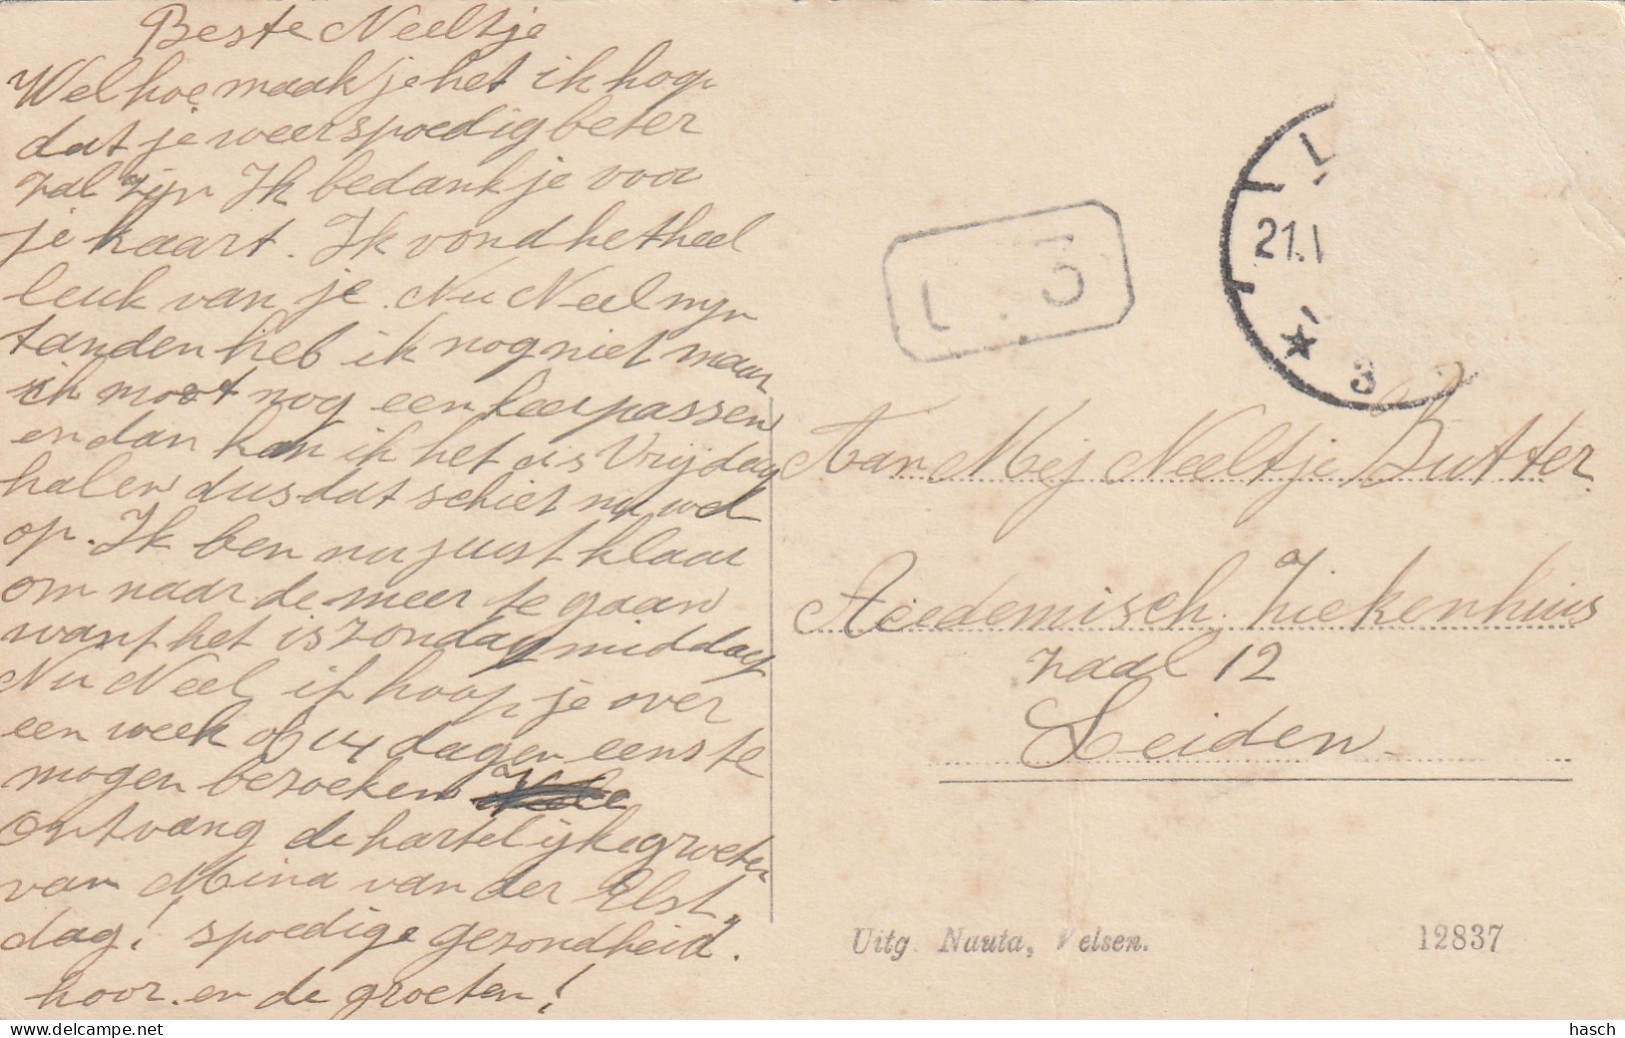 Beste Neeltje
Wel hoe maak je het ik hoop
dat je weer spoedig beter
zal zijn Ik bedank je voor
je kaart. Ik vond het heel
leuk van je. Nu Neel mijn
tanden heb ik nog niet maar
ik moet nog een keer passen
en dan kan ik het as Vrijdag
halen dus dat schiet nu wel
op. Ik ben nu juist klaar
om naar de meer te gaan
want het is zondag middag
Nu Neel ik hoop je over
een week of 14 dagen eens te
mogen bezoeken
Ontvang de hartelijke groeten
van Mina van der Elst,
dag! spoedige gezondheid.
hoor. en de groeten!
21.I
3
3
Aan Mej Neeltje Butter
Accedemisch Ziekenhuis
zaal 12
Leiden
Uitg. Nauta, Velsen.
12837
hasch